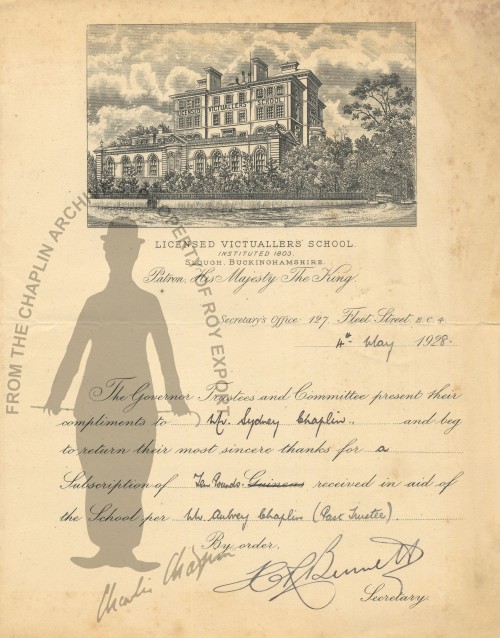 LICENSED VICTUALLERS SCHOOL
LICENSED VICTUALLERS' SCHOOL
INSTITUTED 1803.
SLOUGH, BUCKINGHAMSHIRE.
Patron, His Majesty The King.
Secretary's Office 127, Fleet Street, E.C.4.
4th May 1928.
The Governor Trustees and Committee present their
compliments to Mr. Sydney Chaplin., and beg
to return their most sincere thanks for a
Subscription of Ten Pounds. Guineas received in aid of
the School per Mr. Aubrey Chaplin (Past Trustee).
By order,
Bennett
Secretary.
FROM THE CHAPLIN ARCHI
OPERTY OF ROY EXPORT
Charlie Chaplin